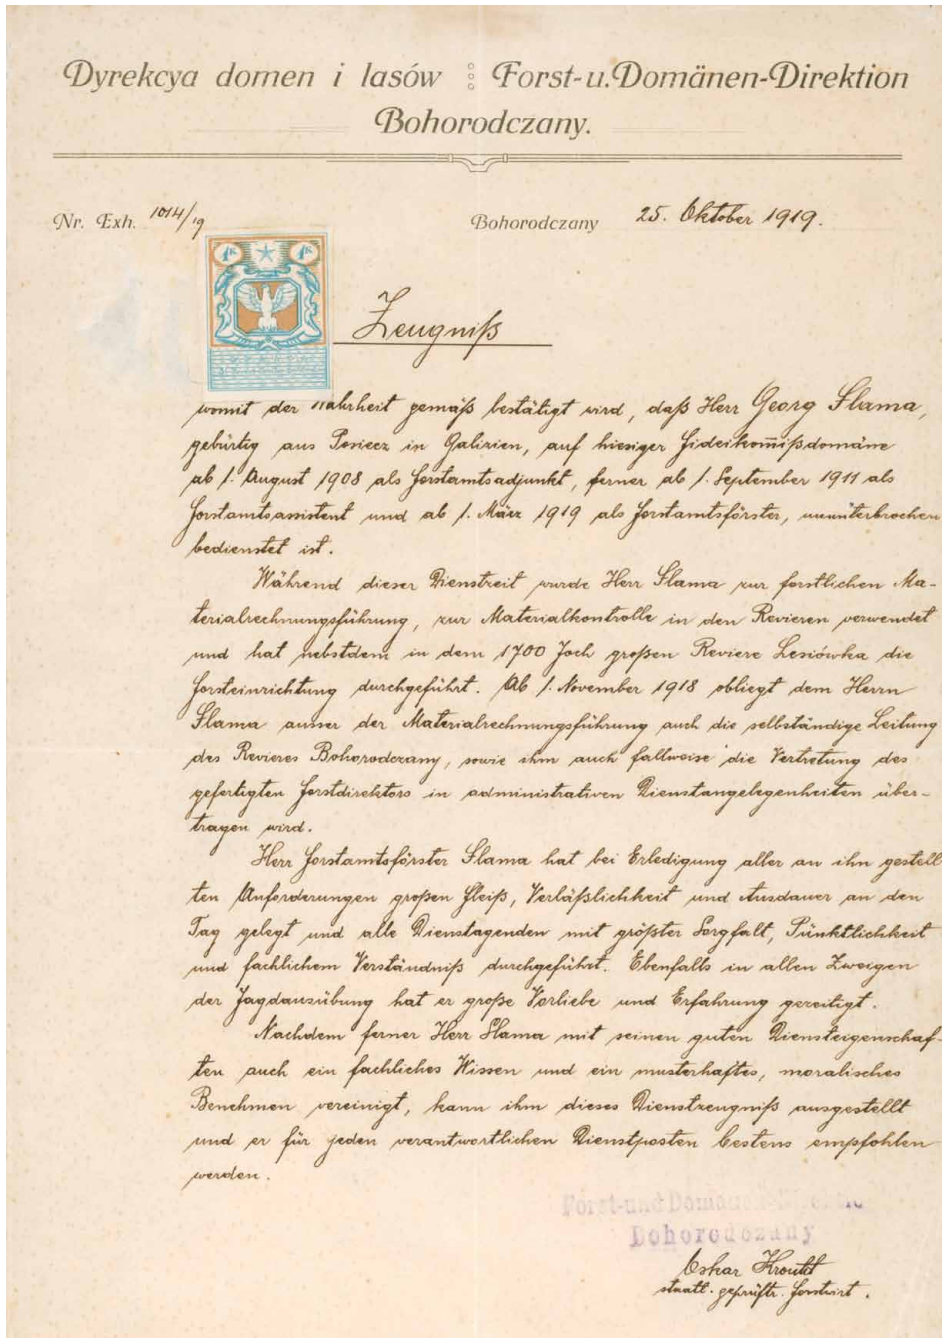 Dyrekcya domen i lasów Forst- u. Domänen-Direktion
Bohorodczany.
Nr. Exh. 1014/19 Bohorodczany 25. Oktober 1919.
1K 1K
Zeugniß
womit der Wahrheit gemäß bestätigt wird, daß Herr Georg Slama,
gebürtig aus Posiecz in Galizien, auf hiesiger Fideikom̅ißdomäne
ab 1. August 1908 als Forstamtsadjunkt, ferner ab 1. September 1911 als
Forstamtsassistent und ab 1. März 1919 als Forstamtsförster, ununterbrochen
bedienstet ist.
Während dieser Dienstzeit wurde Herr Slama zur forstlichen Ma-
terialrechnungsführung, zur Materialkontrolle in den Revieren verwendet
und hat nebstdem in dem 1700 Joch großen Reviere Lesiówka die
Forsteinrichtung durchgeführt. Ab 1. November 1918 obliegt dem Herrn
Slama ausser der Materialrechnungsführung auch die selbständige Leitung
des Revieres Bohorodczany, sowie ihm auch fallweise die Vertretung des
gefertigten Forstdirektors in administrativen Dienstangelegenheiten über-
tragen wird.
Herr Forstamtsförster Slama hat bei Erledigung aller an ihn gestell
ten Anforderungen großen Fleiß, Verläßlichkeit und Ausdauer an den
Tag gelegt und alle Dienstagenden mit größter Sorgfalt, Pünktlichkeit
und fachlichem Verständniß durchgeführt. Ebenfalls in allen Zweigen
der Jagdausübung hat er große Vorliebe und Erfahrung gezeitigt.
Nachdem ferner Herr Slama mit seinen guten Diensteigenschaf-
ten auch ein fachliches Wissen und ein musterhaftes, moralisches
Benehmen vereinigt, kann ihm dieses Dienstzeugniß ausgestellt
und er für jeden verantwortlichen Dienstposten bestens empfohlen
werden.
Forst-und Domänen-Direktion
Bohorodczany
Oskar
staatl. geprüftr. Forstwirt.